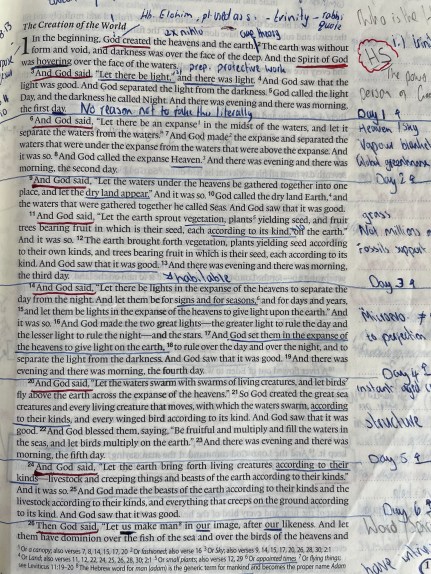 Hb. Elohim, plural ass. - trinity - rabbi
The Creation of the World
ex nihilo
gap theory
1 In the beginning, God created the heavens and the earth. 2 The earth was without
form and void, and darkness was over the face of the deep. And the Spirit of God
was hovering over the face of the waters.
prep. protective work
HS
3 And God said, "Let there be light," and there was light. 4 And God saw that the
light was good. And God separated the light from the darkness. 5 God called the light
Day, and the darkness he called Night. And there was evening and there was morning,
the first day.
No reason not to take this literally
6 And God said, "Let there be an expanse1 in the midst of the waters, and let it
separate the waters from the waters." 7 And God made2 the expanse and separated the
waters that were under the expanse from the waters that were above the expanse. And
it was so. 8 And God called the expanse Heaven.3 And there was evening and there was
morning, the second day.
Day 1
Heaven / Sky
Vapour blanket
Global greenhouse
Day 2
9 And God said, "Let the waters under the heavens be gathered together into one
place, and let the dry land appear." And it was so. 10 God called the dry land Earth,4 and
the waters that were gathered together he called Seas. And God saw that it was good.
11 And God said, "Let the earth sprout vegetation, plants5 yielding seed, and fruit
trees bearing fruit in which is their seed, each according to its kind, on the earth."
And it was so. 12 The earth brought forth vegetation, plants yielding seed according
to their own kinds, and trees bearing fruit in which is their seed, each according to its
kind. And God saw that it was good. 13 And there was evening and there was morning,
the third day.
habitable
grass
Not millions
Fossils support
Day 3
14 And God said, "Let there be lights in the expanse of the heavens to separate the
day from the night. And let them be for signs and for seasons,6 and for days and years,
15 and let them be lights in the expanse of the heavens to give light upon the earth." And
it was so. 16 And God made the two great lights—the greater light to rule the day and
the lesser light to rule the night—and the stars. 17 And God set them in the expanse of
the heavens to give light on the earth, 18 to rule over the day and over the night, and to
separate the light from the darkness. And God saw that it was good. 19 And there was
evening and there was morning, the fourth day.
Day 4
20 And God said, "Let the waters swarm with swarms of living creatures, and let birds7
fly above the earth across the expanse of the heavens." 21 So God created the great sea
creatures and every living creature that moves, with which the waters swarm, according
to their kinds, and every winged bird according to its kind. And God saw that it was
good. 22 And God blessed them, saying, "Be fruitful and multiply and fill the waters in
the seas, and let birds multiply on the earth." 23 And there was evening and there was
morning, the fifth day.
instant
structure
Day 5
24 And God said, "Let the earth bring forth living creatures according to their
kinds—livestock and creeping things and beasts of the earth according to their kinds."
And it was so. 25 And God made the beasts of the earth according to their kinds and the
livestock according to their kinds, and everything that creeps on the ground according
to its kind. And God saw that it was good.
Day 6
26 Then God said, "Let us make man8 in our image, after our likeness. And let
them have dominion over the fish of the sea and over the birds of the heavens and
1 Or a canopy; also verses 7, 8, 14, 15, 17, 20 2 Or fashioned; also verse 16 3 Or Sky; also verses 9, 14, 15, 17, 20, 26, 28, 30; 2:1
4 Or Land; also verses 11, 12, 22, 24, 25, 26, 28, 30; 2:1 5 Or small plants; also verses 12, 29 6 Or appointed times 7 Or flying things;
see Leviticus 11:19–20 8 The Hebrew word for man (adam) is the generic term for mankind and becomes the proper name Adam